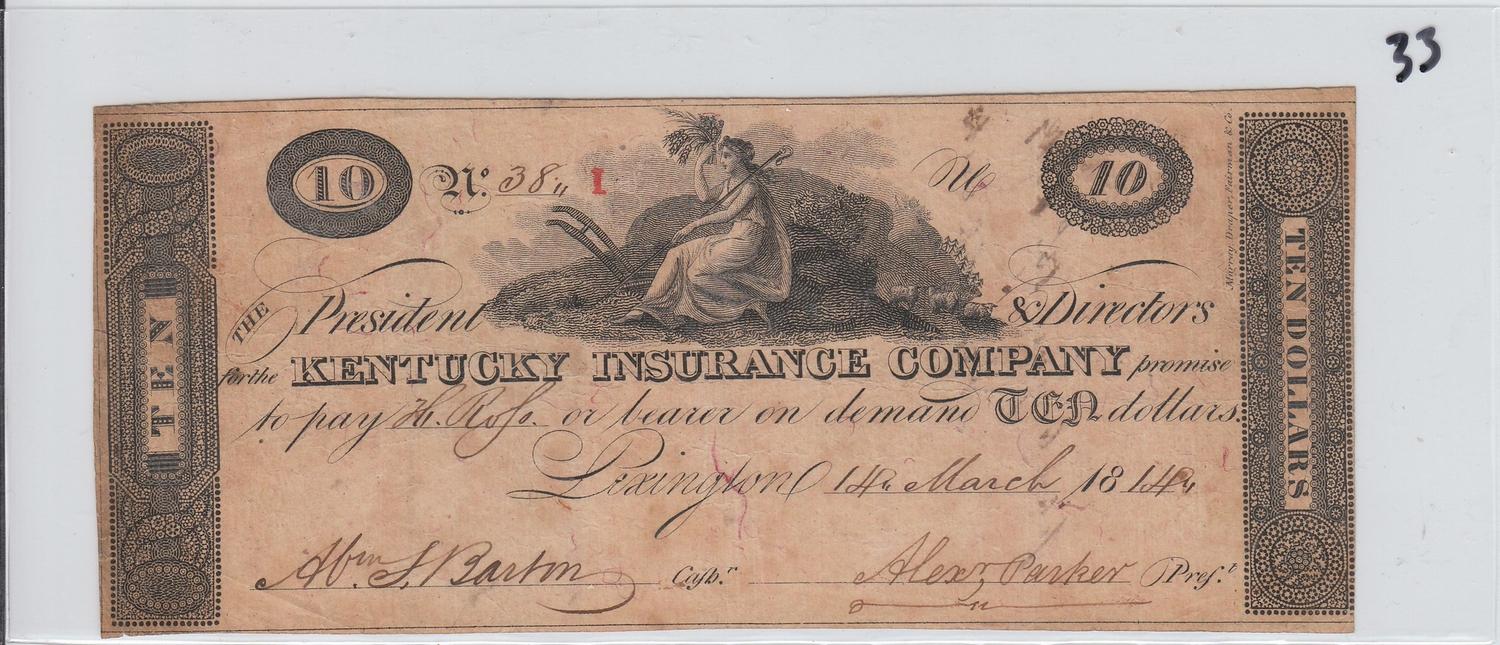 33
10 No. 38 I No 10
THE President & Directors
for the KENTUCKY INSURANCE COMPANY promise
to pay H. Ross. or bearer on demand TEN dollars.
Lexington 14 March 1814
Abm. S. Barton Cash.r Alexr Parker Pres.t
TEN
TEN DOLLARS
Murray, Draper, Fairman & Co.